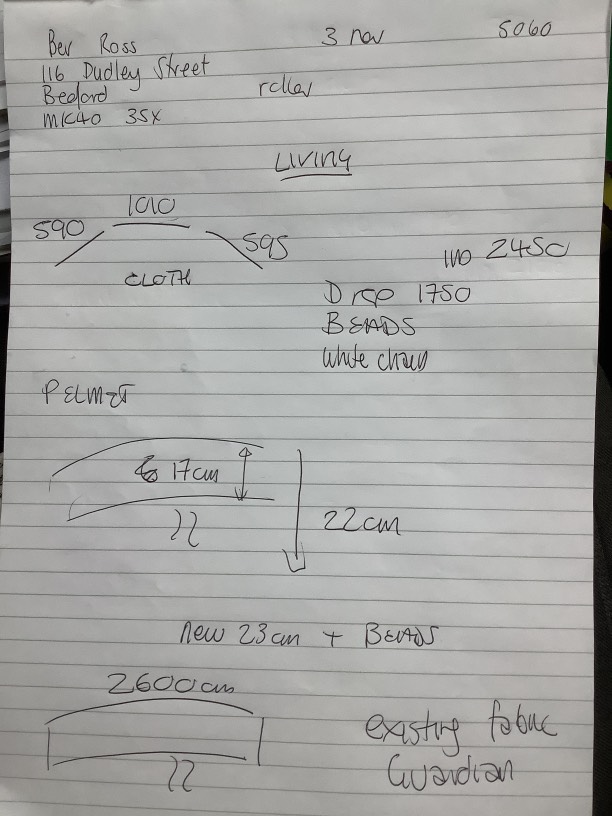 Bev Ross 3 nov 5060
116 Dudley Street
Bedford roller
MK40 3SX
LIVING
590 1010 595
CLOTH
2450
Drop 1750
BEADS
white chain
PELMET
17cm
22cm
new 23cm + BEADS
2600cm
existing fabric
Guardian